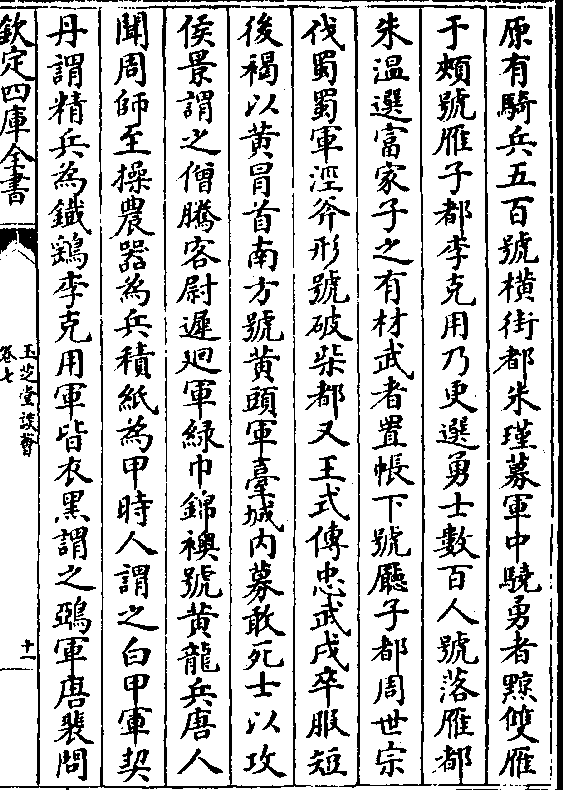 原有騎兵五百號橫街都朱瑾募軍中驍勇者黥雙雁
于頰號雁子都李克用乃更選勇士數百人號落雁都
朱溫選富家子之有材武者置帳下號廳子都周世宗
伐蜀蜀軍涇斧形號破柴都又王式傳忠武戍卒服短
後褐以黃冐首南方號黃頭軍臺城内募敢死士以攻
侯景謂之僧騰客尉遲廻軍緑巾錦襖號黃龍兵唐人
聞周師至操農器為兵積紙為甲時人謂之白甲軍契
丹謂精兵為鐵鷂李克用軍皆衣黑謂之鵶軍唐裴問
欽定四庫全書
玉芝堂談薈
卷七
十一